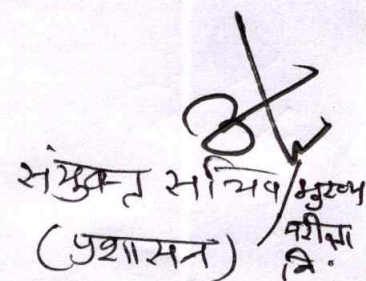 संयुक्त सचिव/मुख्य
परीक्षा
(प्रशासन) नि.